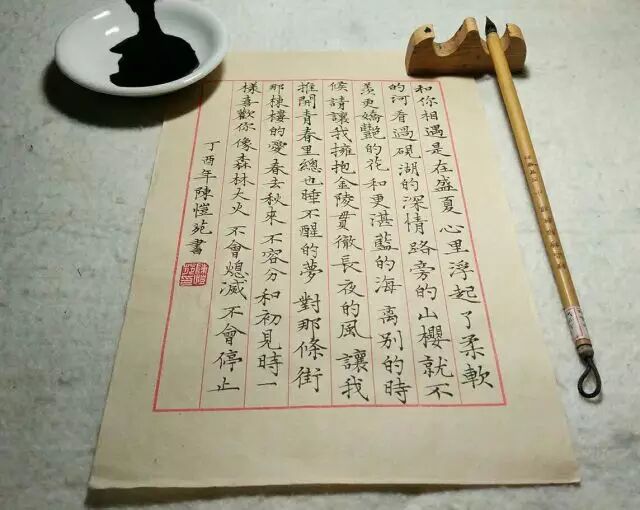 和你相遇是在盛夏 心里浮起了柔軟
的河 看過硯湖的深情 路旁的山櫻 就不
羨更嬌艷的花 和更湛藍的海 離別的時
候 請讓我擁抱金陵貫徹長夜的風 讓我
推開青春里總也睡不醒的夢 對那條街
那棟樓的愛 春去秋來 不容分 和初見時一
樣喜歡你 像森林大火 不會熄滅 不會停止
丁酉年陳愷苑書